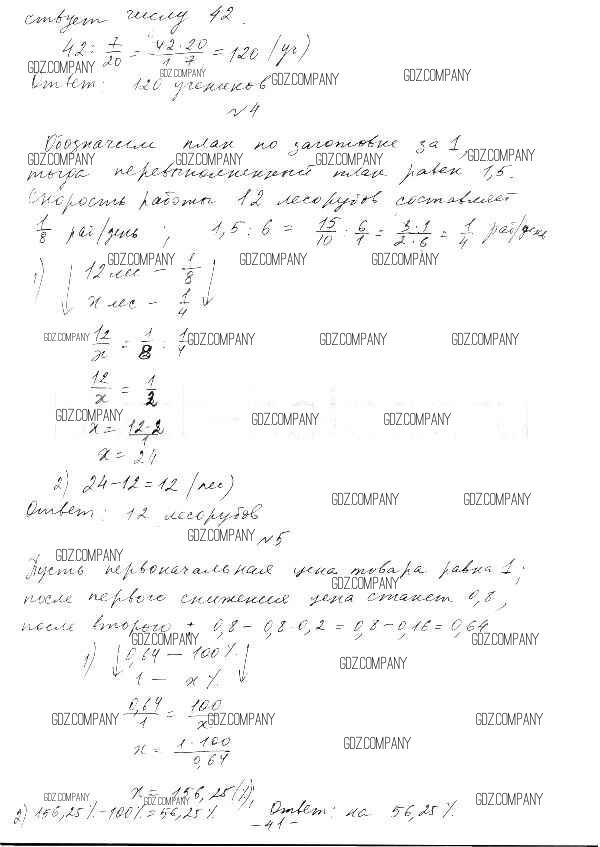 ствует числу 42.
42 : 7/20 = 42·20/1·7 = 120 (уч)
GDZ.COMPANY GDZ.COMPANY GDZ.COMPANY GDZ.COMPANY
Ответ: 120 учеников
№4
Обозначим план по заготовке за 1,
GDZ.COMPANY GDZ.COMPANY GDZ.COMPANY GDZ.COMPANY
тогда перевыполненный план равен 1,5.
Скорость работы 12 лесорубов составляет
1/8 раб/день; 1,5 : 6 = 15/10 : 6/1 = 3·1/2·6 = 1/4 раб/день
GDZ.COMPANY GDZ.COMPANY GDZ.COMPANY
1) 12 лес – 1/8
x лес – 1/4
GDZ.COMPANY GDZ.COMPANY GDZ.COMPANY GDZ.COMPANY
12/x = 1/8 : 1/4
12/x = 1/2
GDZ.COMPANY GDZ.COMPANY GDZ.COMPANY
x = 12·2/1
x = 24
2) 24 – 12 = 12 (лес)
GDZ.COMPANY GDZ.COMPANY
Ответ: 12 лесорубов
GDZ.COMPANY №5
GDZ.COMPANY
Пусть первоначальная цена товара равна 1;
GDZ.COMPANY
после первого снижения цена станет 0,8,
после второго : 0,8 – 0,8·0,2 = 0,8 – 0,16 = 0,64
GDZ.COMPANY GDZ.COMPANY GDZ.COMPANY
1) 0,64 – 100%
GDZ.COMPANY
1 – x%
0,64/1 = 100/x
GDZ.COMPANY GDZ.COMPANY GDZ.COMPANY
x = 1·100/0,64
GDZ.COMPANY
x = 156,25 (%);
GDZ.COMPANY GDZ.COMPANY GDZ.COMPANY
2) 156,25% – 100% = 56,25%. Ответ: на 56,25%.
– 41 –